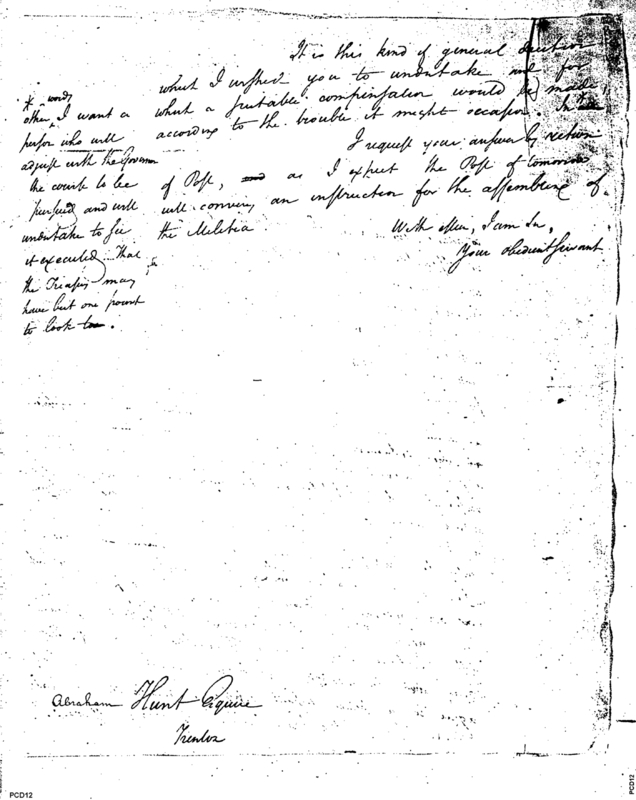 It is this kind of general direction
which I wished you to undertake and for
which a suitable compensation would be made,
according to the trouble it might occasion.
I request your answer by return
of Post, as I expect the Post of tomorrow
will convey an instruction for the assembling of
the Militia
With &c, I am Sir,
Your obedient Servant
* words
other I want a
person who will
adjust with the Governor
the course to be
pursued and will
undertake to see
it executed. That
the Treasury may
have but one point
to look to.
Abraham Hunt Esquire
Trenton
PCD12
PCD12